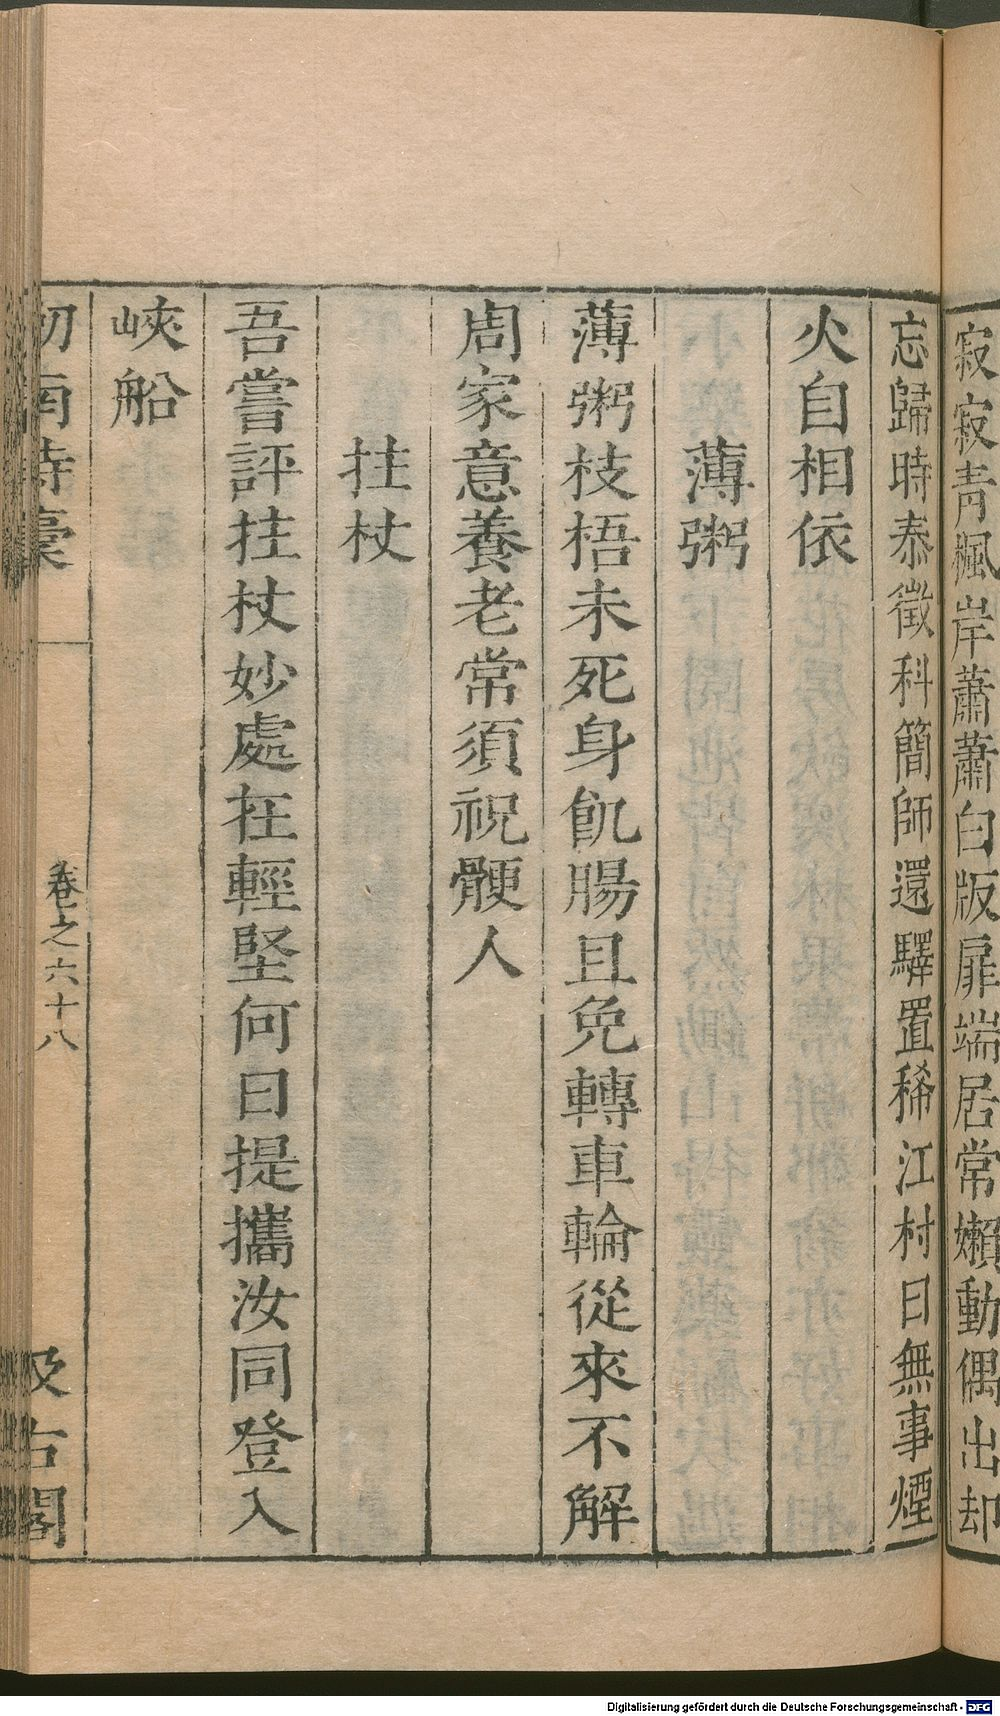 寂寂青楓岸蕭蕭白版扉端居常嬾動偶出却
忘歸時泰徵科簡師還驛置稀江村日無事煙
火自相依
薄粥
薄粥枝梧未死身飢腸且免轉車輪從來不解
周家意養老常須祝髀人
拄杖
吾嘗評拄杖妙處在輕堅何日提攜汝同登入
峽船
劒南詩稾
卷之六十八
汲古閣
Digitalisierung gefördert durch die Deutsche Forschungsgemeinschaft - DFG